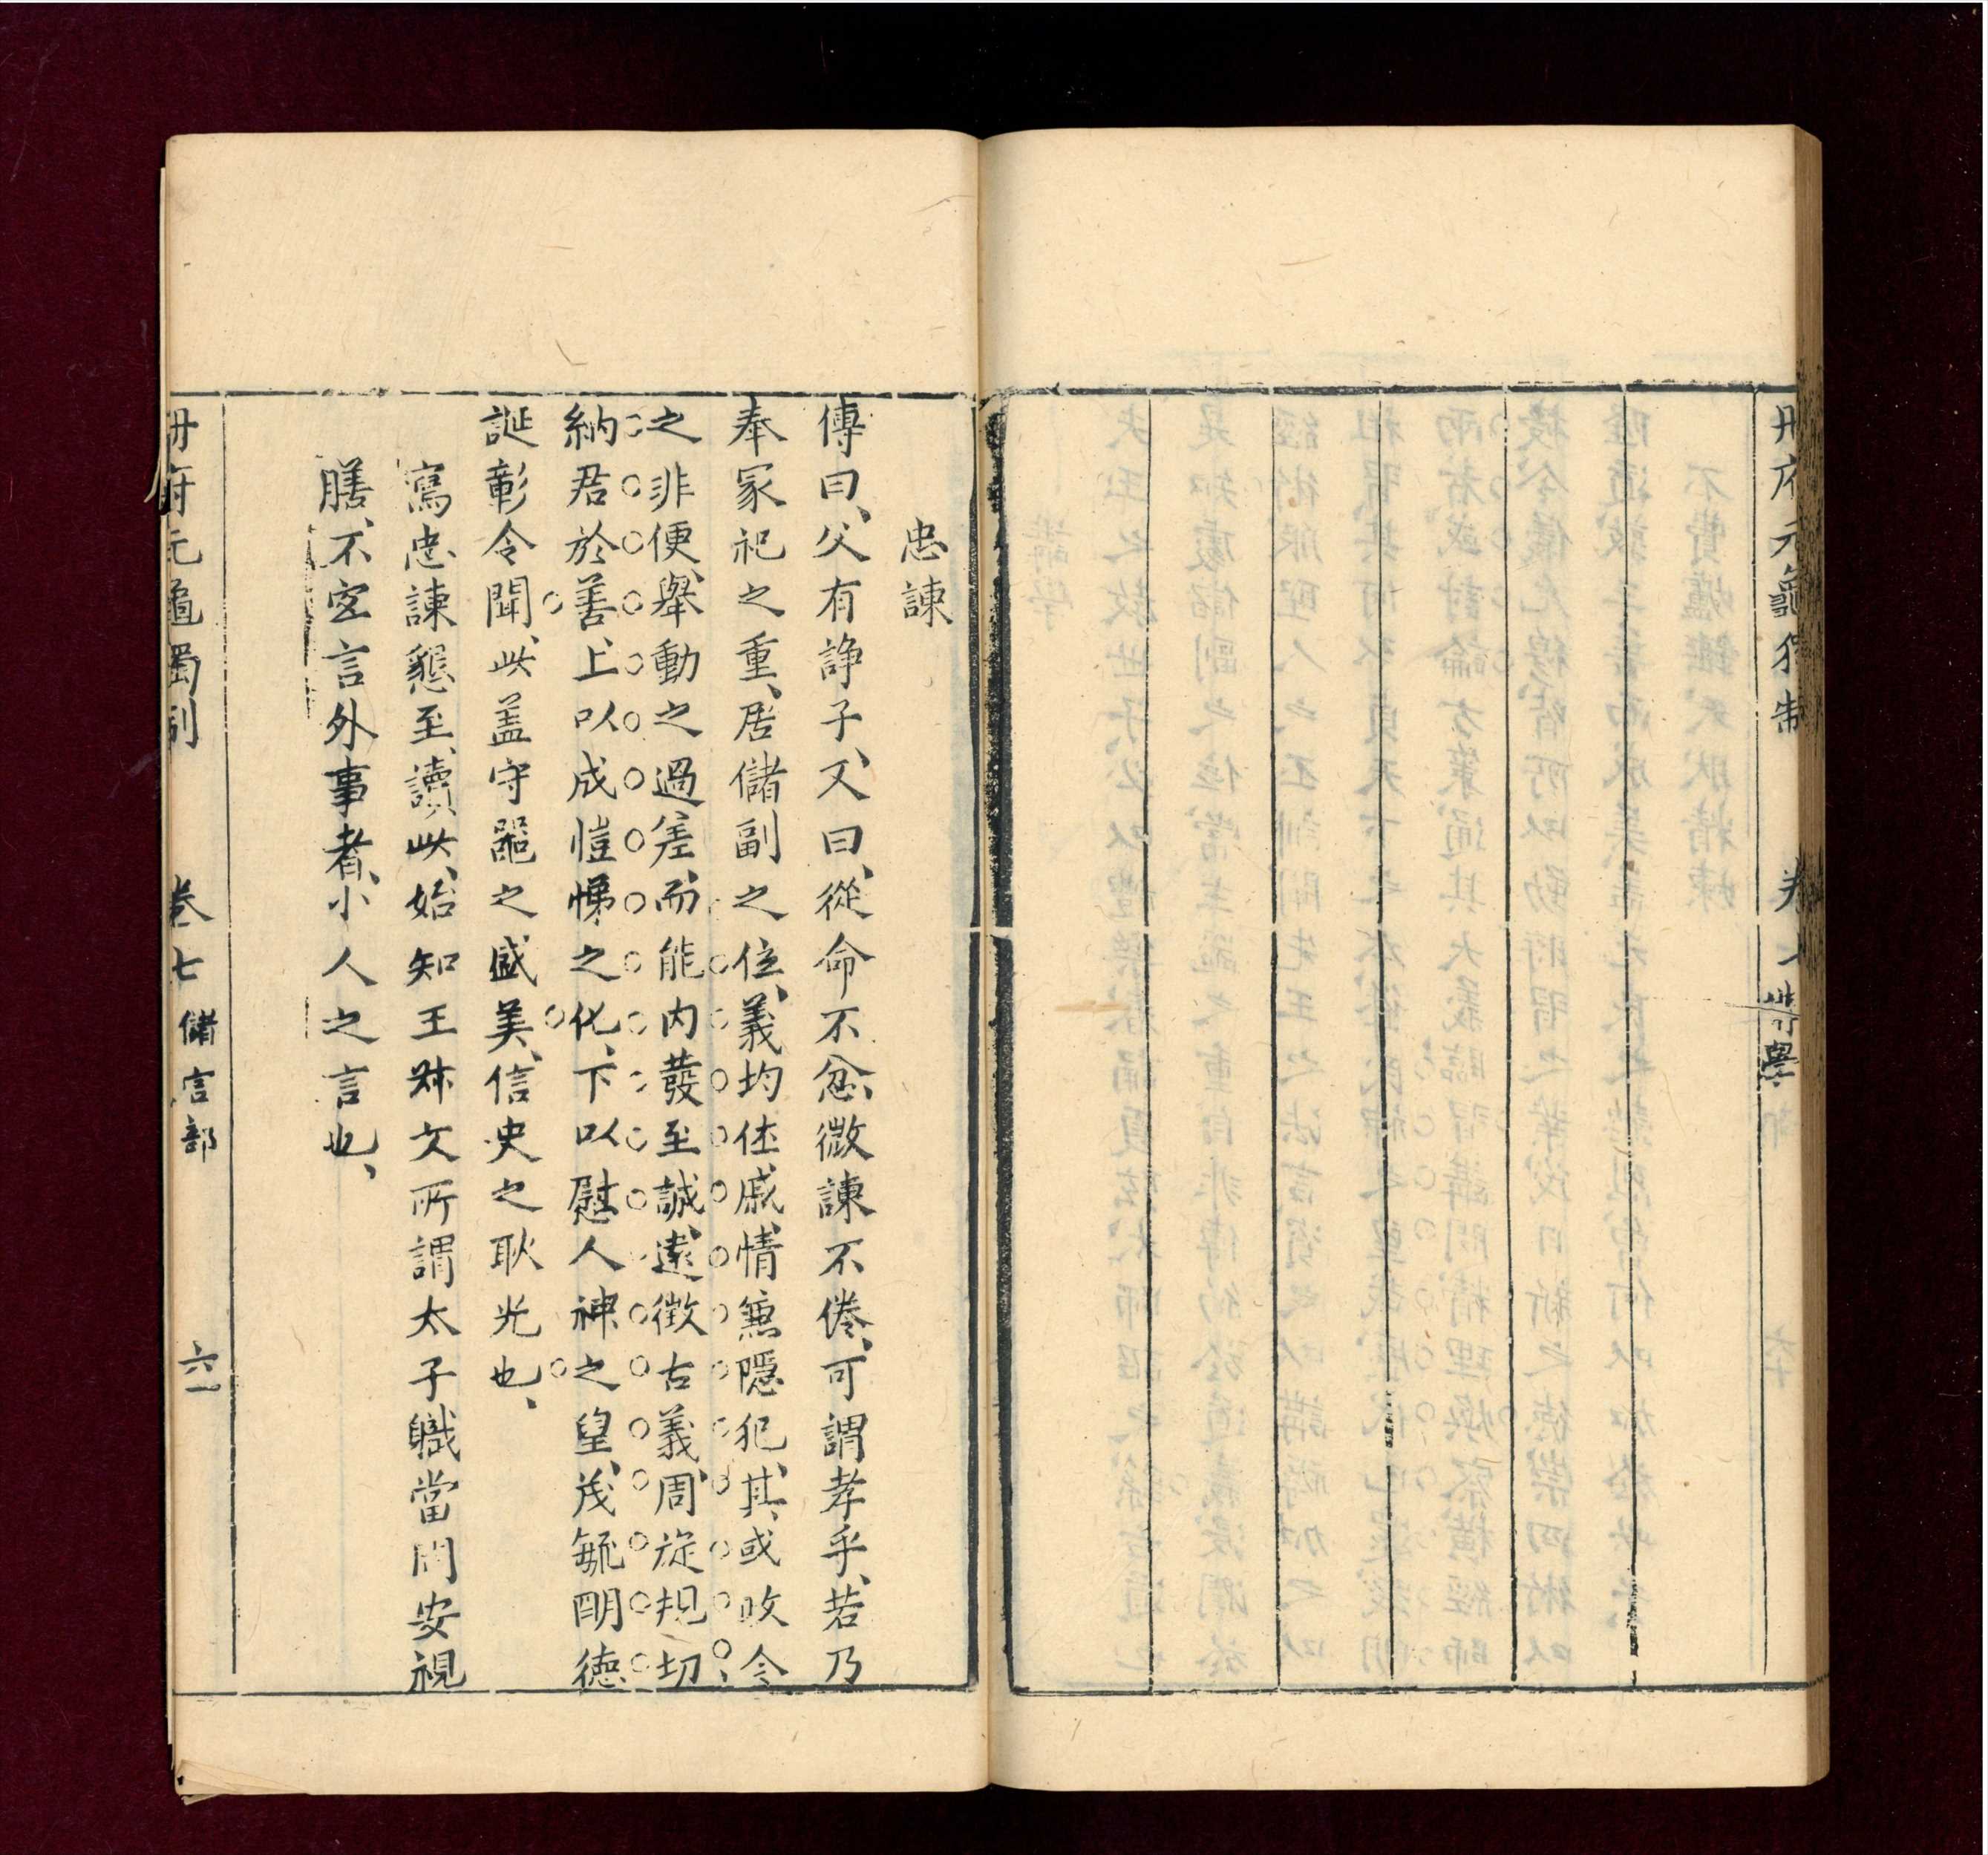 忠諫
傳曰、父有諍子、又曰、從命不忿、微諫不倦、可謂孝乎、若乃
奉冢祀之重、居儲副之位、義均休戚、情無隱犯、其或政令
之非便、舉動之過差、而能內發至誠、遠徵古義、周旋規切、
納君於善、上以成愷悌之化、下以慰人神之望、茂毓明德
誕彰令聞、此蓋守器之盛美、信史之耿光也、
寫忠諫懇至、讀此、始知王叔文所謂太子職當問安視
膳、不宜言外事者、小人之言也、
冊府元龜獨制
卷七
儲宮部
六一